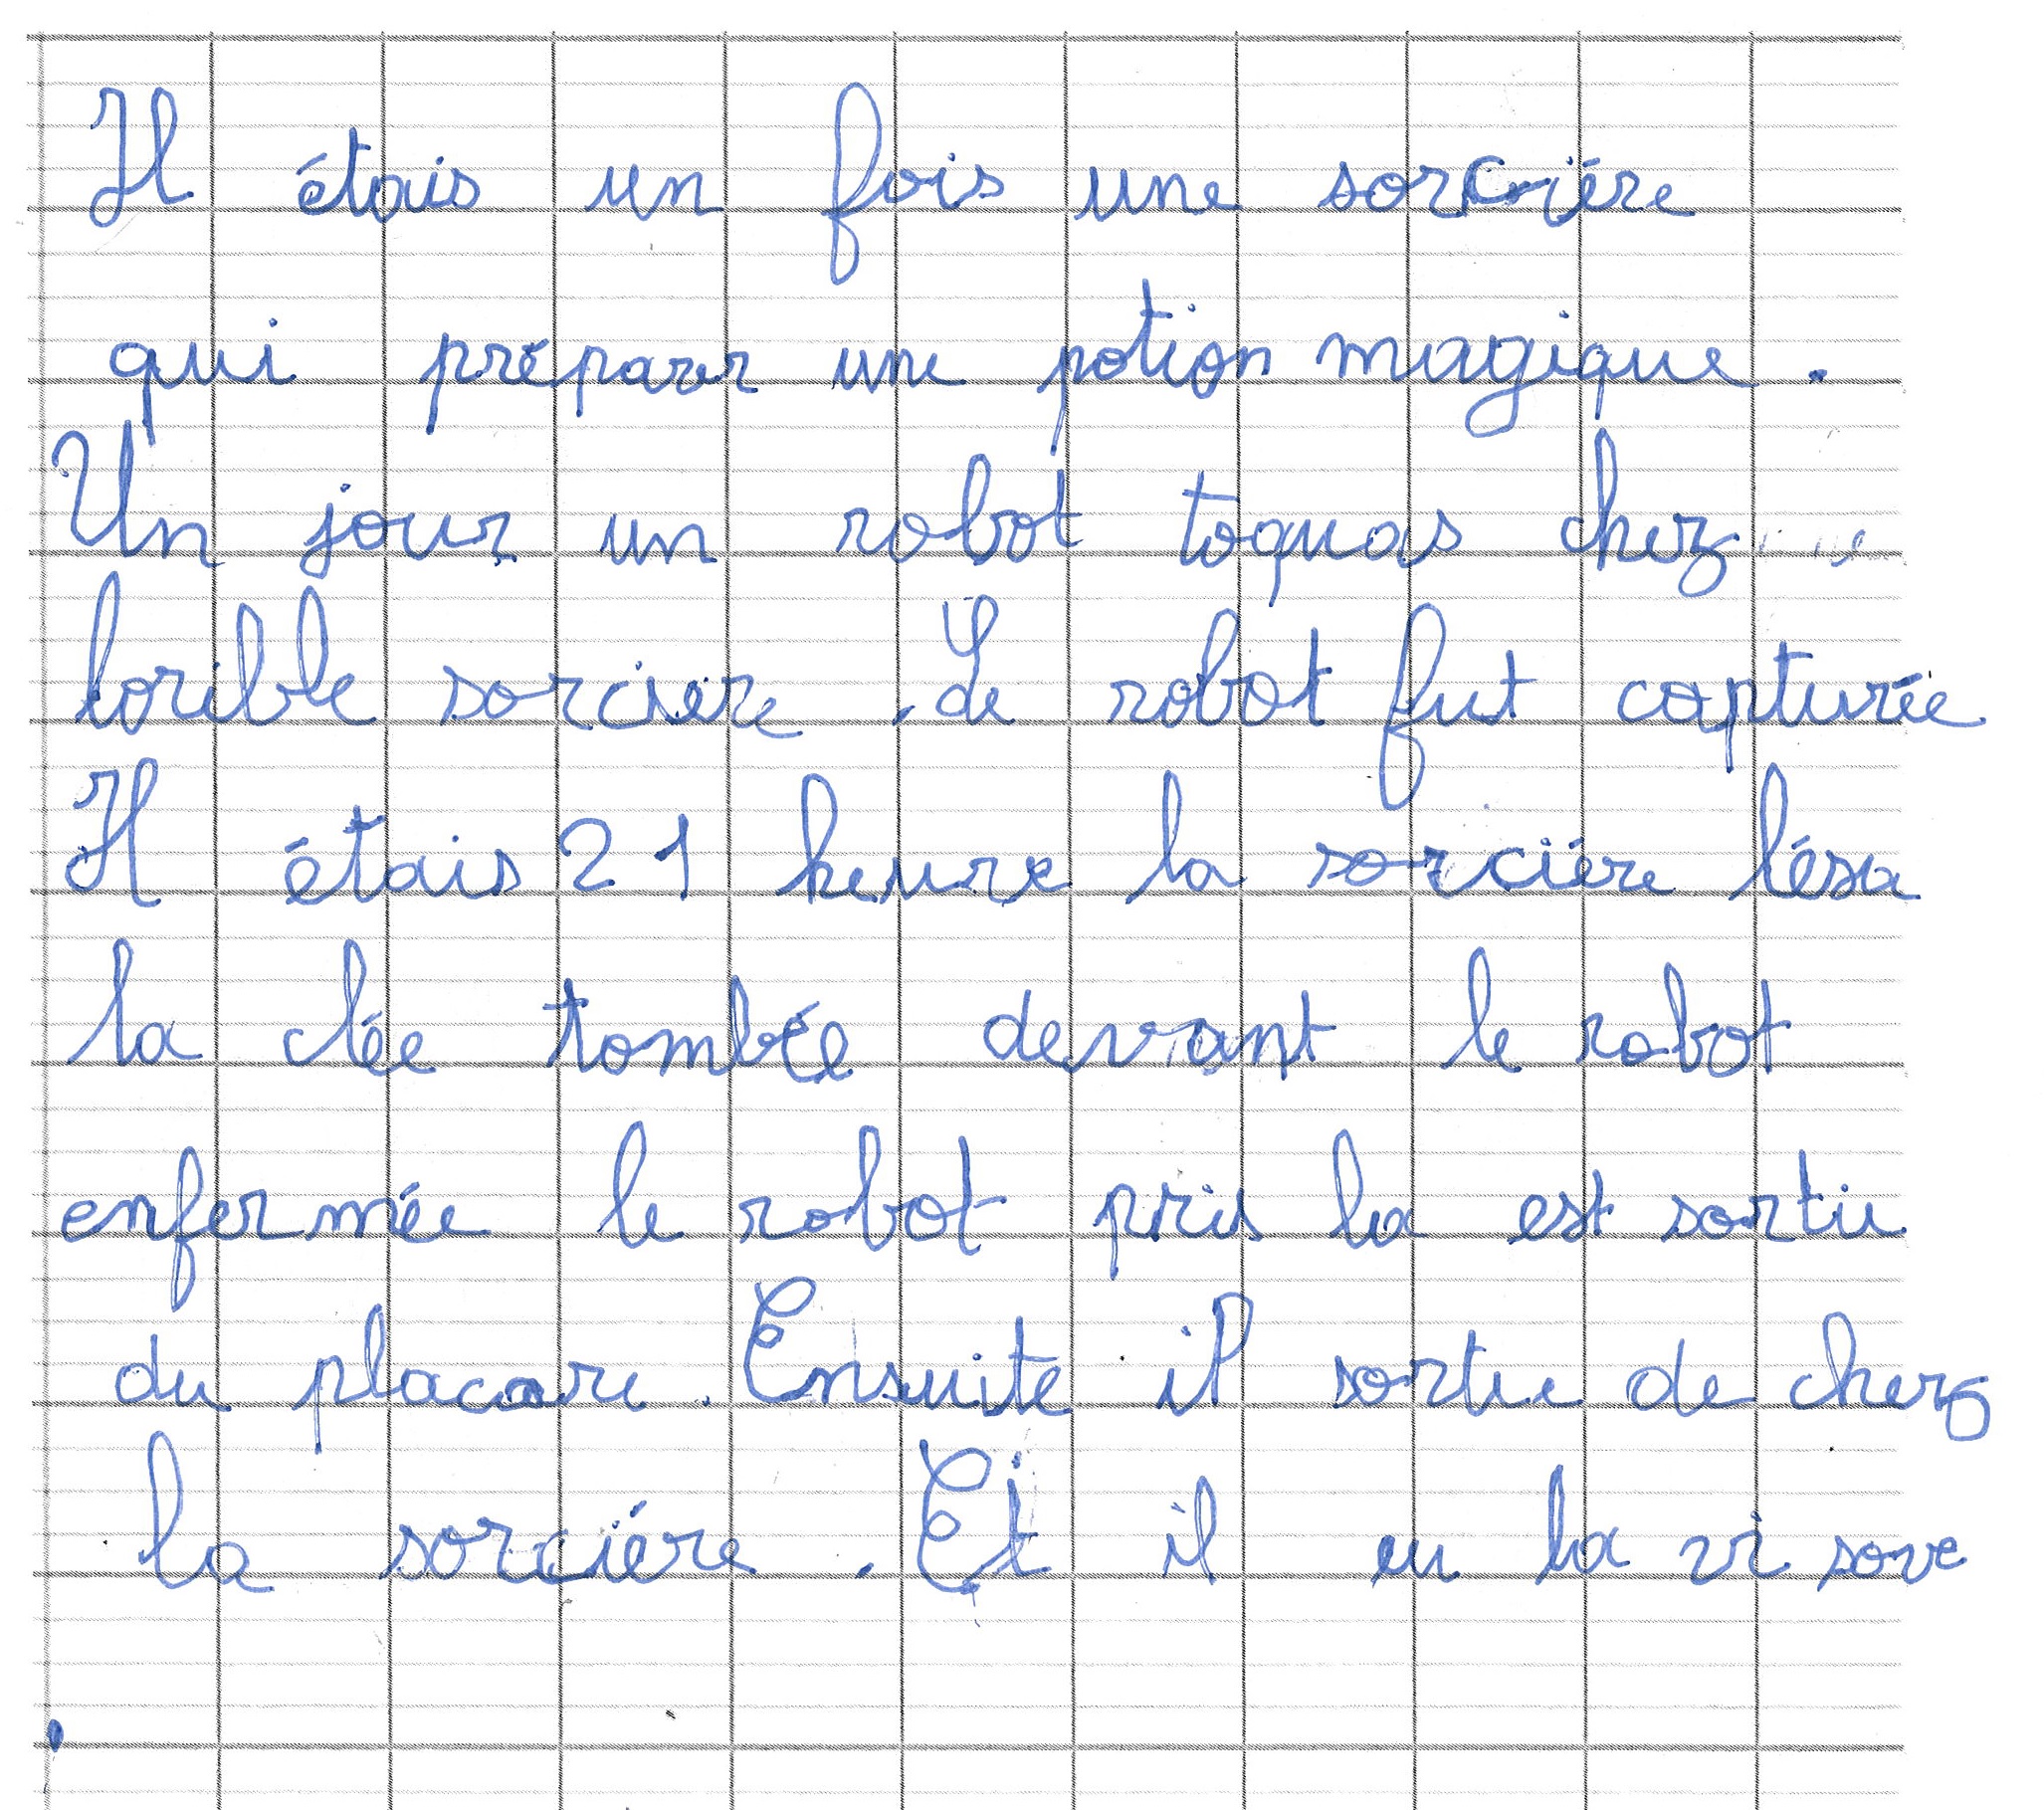 Il étais un fois une sorciére
qui préparer une potion magique.
Un jour un robot toquas chez
lorible sorciere. Le robot fut capturée
Il étais 21 heure la sorciére lésa
la clée tombée devant le robot
enfermée le robot pris la est sortie
du placare. Ensuite il sortie de chez
la sorciére. Et il eu la vi sove
.